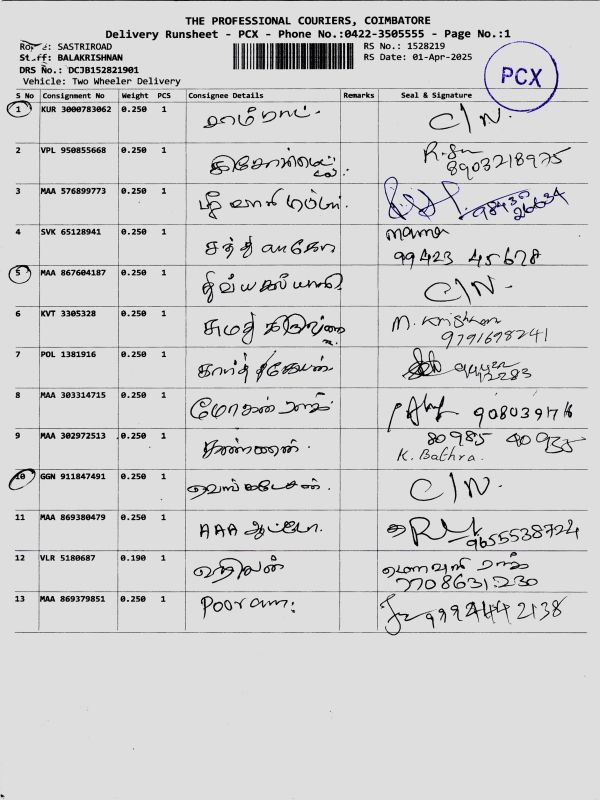 THE PROFESSIONAL COURIERS, COIMBATORE
Delivery Runsheet - PCX - Phone No.:0422-3505555 - Page No.:1
Route: SASTRIROAD RS No.: 1528219
Staff: BALAKRISHNAN RS Date: 01-Apr-2025
DRS No.: DCJB152821901
Vehicle: Two Wheeler Delivery
PCX
S No Consignment No Weight PCS Consignee Details Remarks Seal & Signature
1 KUR 3000783062 0.250 1 ராம்ராட். C/N.
2 VPL 950855668 0.250 1 8903218975
3 MAA 576899773 0.250 1
4 SVK 65128941 0.250 1 99423 45678
5 MAA 867604187 0.250 1 திவ்யகல்யாணி. C/N.
6 KVT 3305328 0.250 1 M. Krishnan
9791698241
7 POL 1381916 0.250 1 கார்த்திகேயன்
8 MAA 303314715 0.250 1 மோகன்ராஜ்
9 MAA 302972513 0.250 1 கண்ணன். 80985 40955
K. Bathra.
10 GGN 911847491 0.250 1 வெங்கடேசன். C/N.
11 MAA 869380479 0.250 1 AAA ஆட்டோ. 9655538724
12 VLR 5180687 0.190 1 7708631230
13 MAA 869379851 0.250 1 Pooram: 9994442138